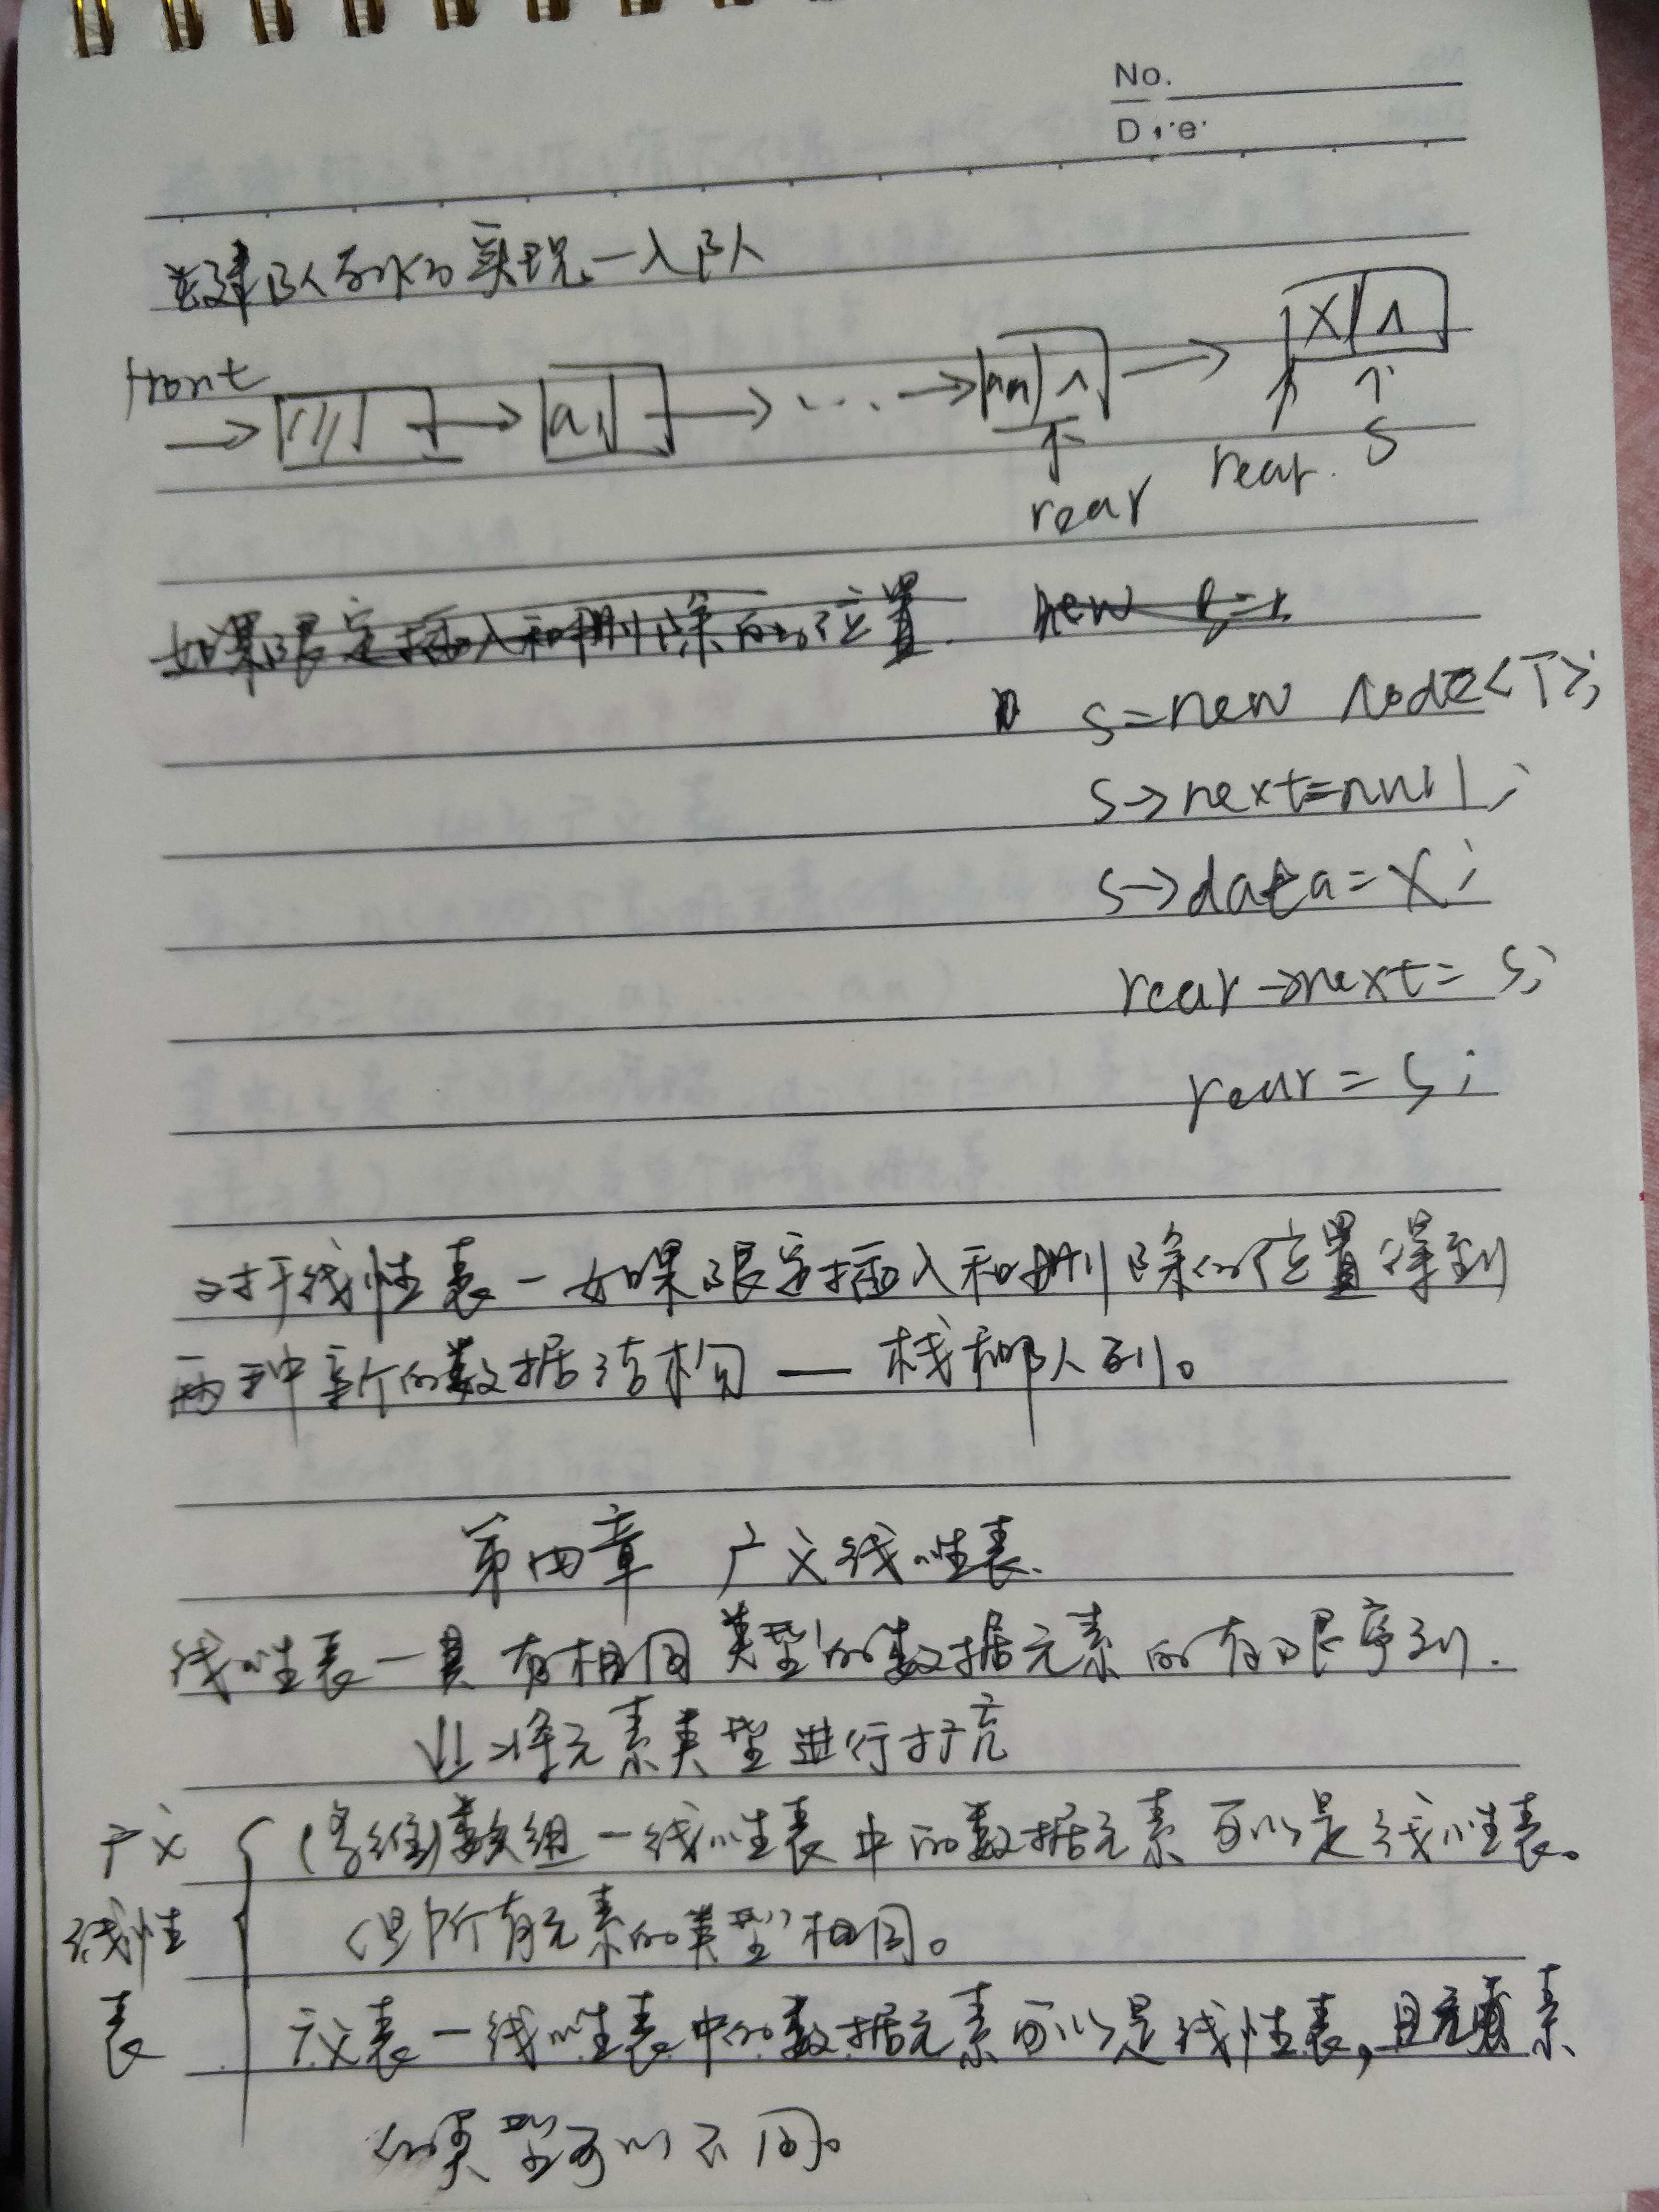 No.
Date
队列的实现—入队
front
a1
...
an ∧
x ∧
rear
rear
s
如果限定插入和删除的位置
new
s=new Node<T>;
s→next=null;
s→data=x;
rear→next=s;
rear=s;
对于线性表—如果限定插入和删除的位置得到
两种新的数据结构——栈和队列。
第四章 广义线性表
线性表—具有相同类型的数据元素的有限序列.
↓将元素类型进行扩充
广义
线性
表
(多维)数组—线性表中的数据元素可以是线性表。
但所有元素的类型相同。
广义表—线性表中的数据元素可以是线性表,且元素
的类型可以不同。